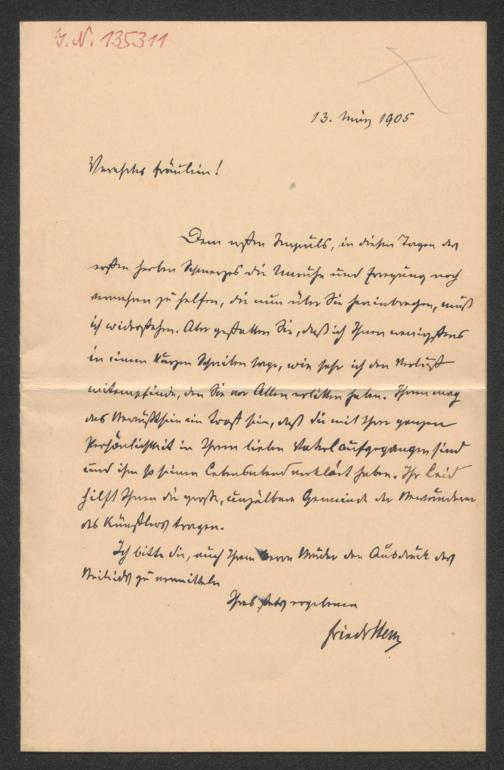 J. N. 135311
13. März 1905
Verehrtes Fräulein!
Dem ersten Impuls, in diesen Tagen des
ersten herben Schmerzes die Unruhe und Erregung noch
vermehren zu helfen, die nun über Sie hereinbrechen, muß
ich widerstehen. Aber gestatten Sie, daß ich Ihnen wenigstens
in einem kurzen Schreiben sage, wie sehr ich den Verlust
mitempfinde, den Sie vor Allen erlitten haben. Ihnen mag
das Bewußtsein ein Trost sein, daß Sie mit Ihrer ganzen
Persönlichkeit in Ihrem lieben Vater aufgegangen sind
und ihm so seinen Lebensabend verklärt haben. Ihr Leid
hilft Ihnen die große, unzälbare Gemeinde der Bewunderer
des Künstlers tragen.
Ich bitte Sie, auch Ihrem Herrn Bruder den Ausdruck des
Beileids zu vermitteln
Ihres stets ergebenen